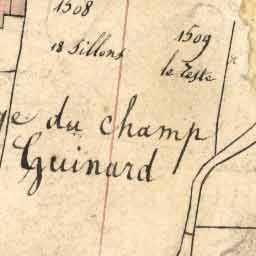 1508
1509
18 Sillons
le Teste
ge du champ
Guinard